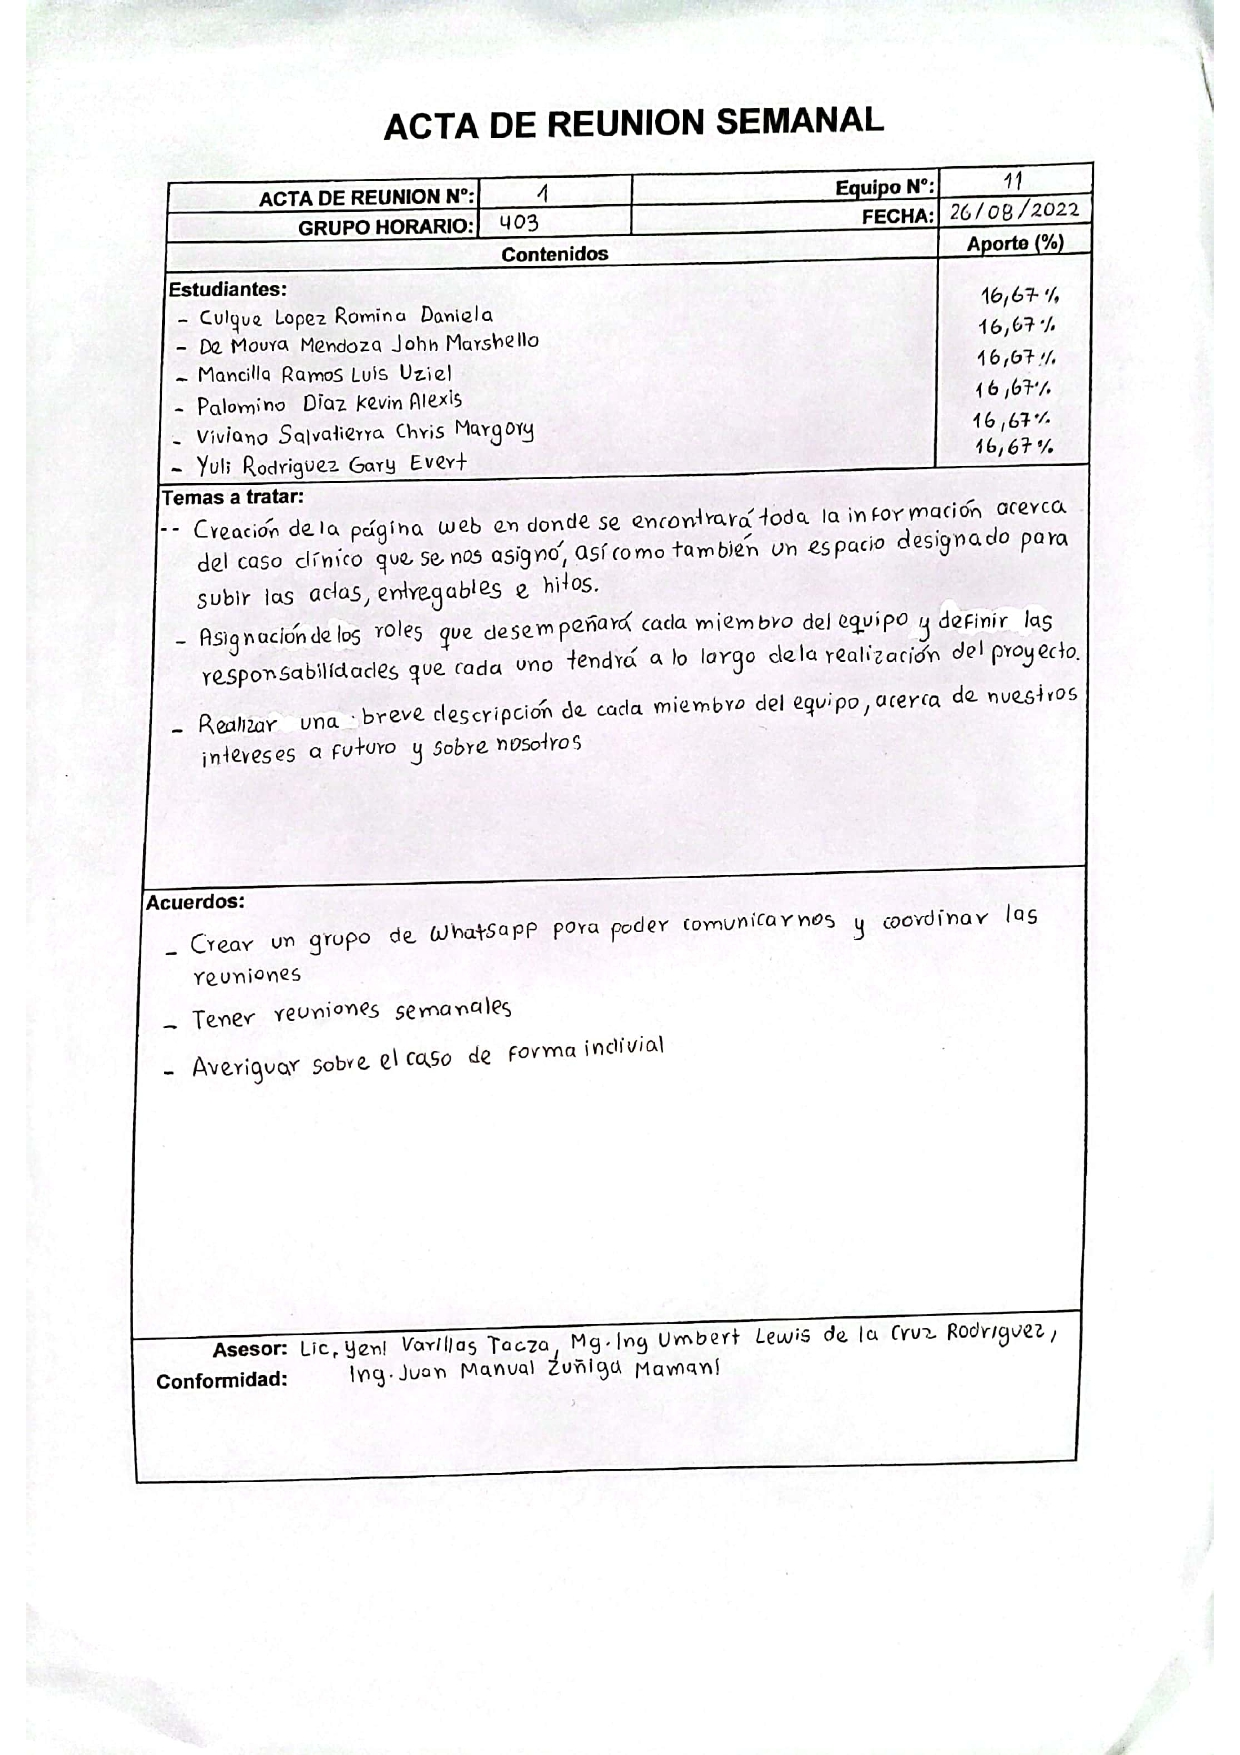 ACTA DE REUNION SEMANAL
ACTA DE REUNION Nº: 1 Equipo Nº: 11
GRUPO HORARIO: 403 FECHA: 26/08/2022
Contenidos Aporte (%)
Estudiantes:
- Culque Lopez Romina Daniela 16,67%
- De Moura Mendoza John Marshello 16,67%
- Mancilla Ramos Luis Uziel 16,67%
- Palomino Diaz Kevin Alexis 16,67%
- Viviano Salvatierra Chris Margory 16,67%
- Yuli Rodriguez Gary Evert 16,67%
Temas a tratar:
-- Creación de la página web en donde se encontrará toda la información acerca
del caso clínico que se nos asignó, así como también un espacio designado para
subir las actas, entregables e hitos.
- Asignación de los roles que desempeñará cada miembro del equipo y definir las
responsabilidades que cada uno tendrá a lo largo de la realización del proyecto.
- Realizar una breve descripción de cada miembro del equipo, acerca de nuestros
intereses a futuro y sobre nosotros
Acuerdos:
- Crear un grupo de Whatsapp para poder comunicarnos y coordinar las
reuniones
- Tener reuniones semanales
- Averiguar sobre el caso de forma indivial
Asesor: Lic, Yeni Varillas Tacza, Mg. Ing Umbert Lewis de la Cruz Rodriguez,
Conformidad: Ing. Juan Manual Zuñiga Mamani